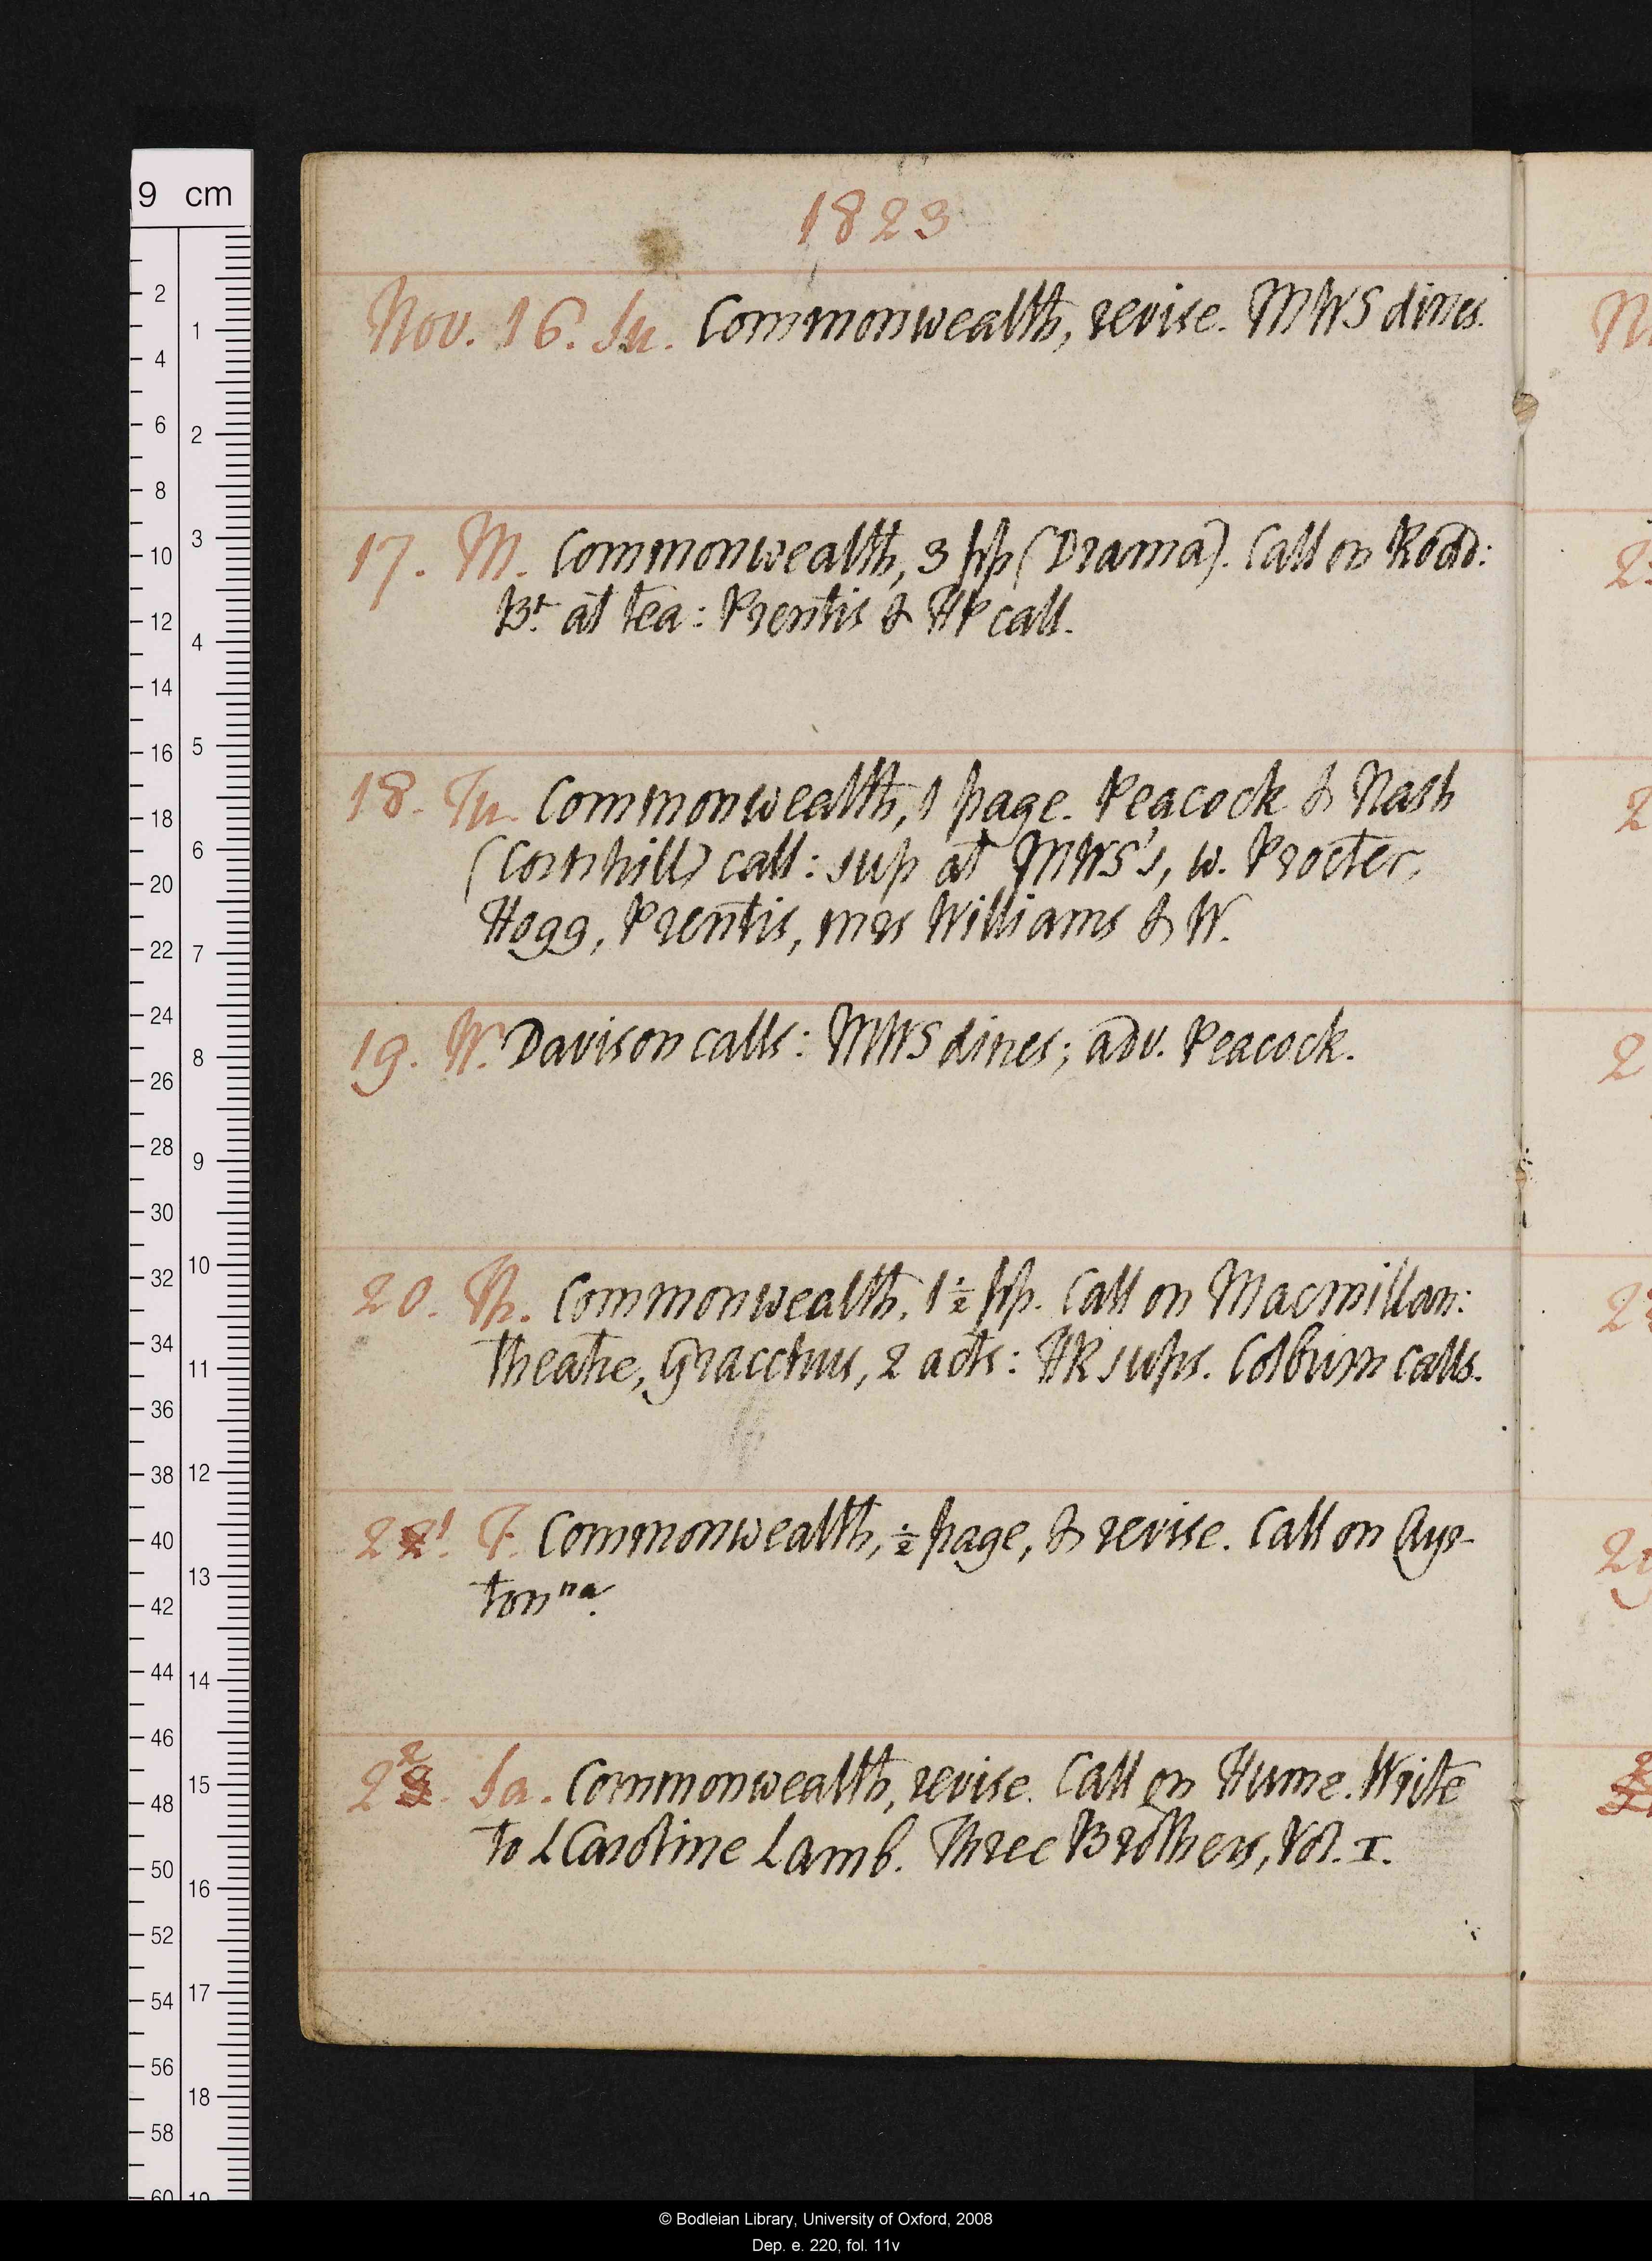 9 cm
1823
Nov. 16. Su. Commonwealth, revise. MWS dines.
17. M. Commonwealth, 3 pp (Drama). Call on Rodd:
Bt. at tea: Prentis & HP call.
18. Tu. Commonwealth, 1 page. Peacock & Nash
(Cornhill) call: sup at MWS's, w. Procter,
Hogg, Prentis, mrs Williams & W.
19. W. Davison calls: MWS dines; adv. Peacock.
20. Th. Commonwealth, 1½ pp. Call on Macmillan:
theatre, Gracchus, 2 acts: HR sups. Colburn calls.
21. F. Commonwealth, ½ page, & revise. Call on Ayr-
ton na.
22. Sa. Commonwealth, revise. Call on Hume. Write
to L Caroline Lamb. Three Brothers, Vol. I.
© Bodleian Library, University of Oxford, 2008
Dep. e. 220, fol. 11v